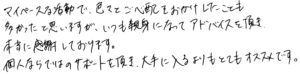 マイペースな活動で、色々とご心配をおかけしたことも
多かったと思いますが、いつも親身になってアドバイスを頂き
本当に感謝しております。
個人ならではのサポートを頂き、大手に入るよりもとてもオススメです。